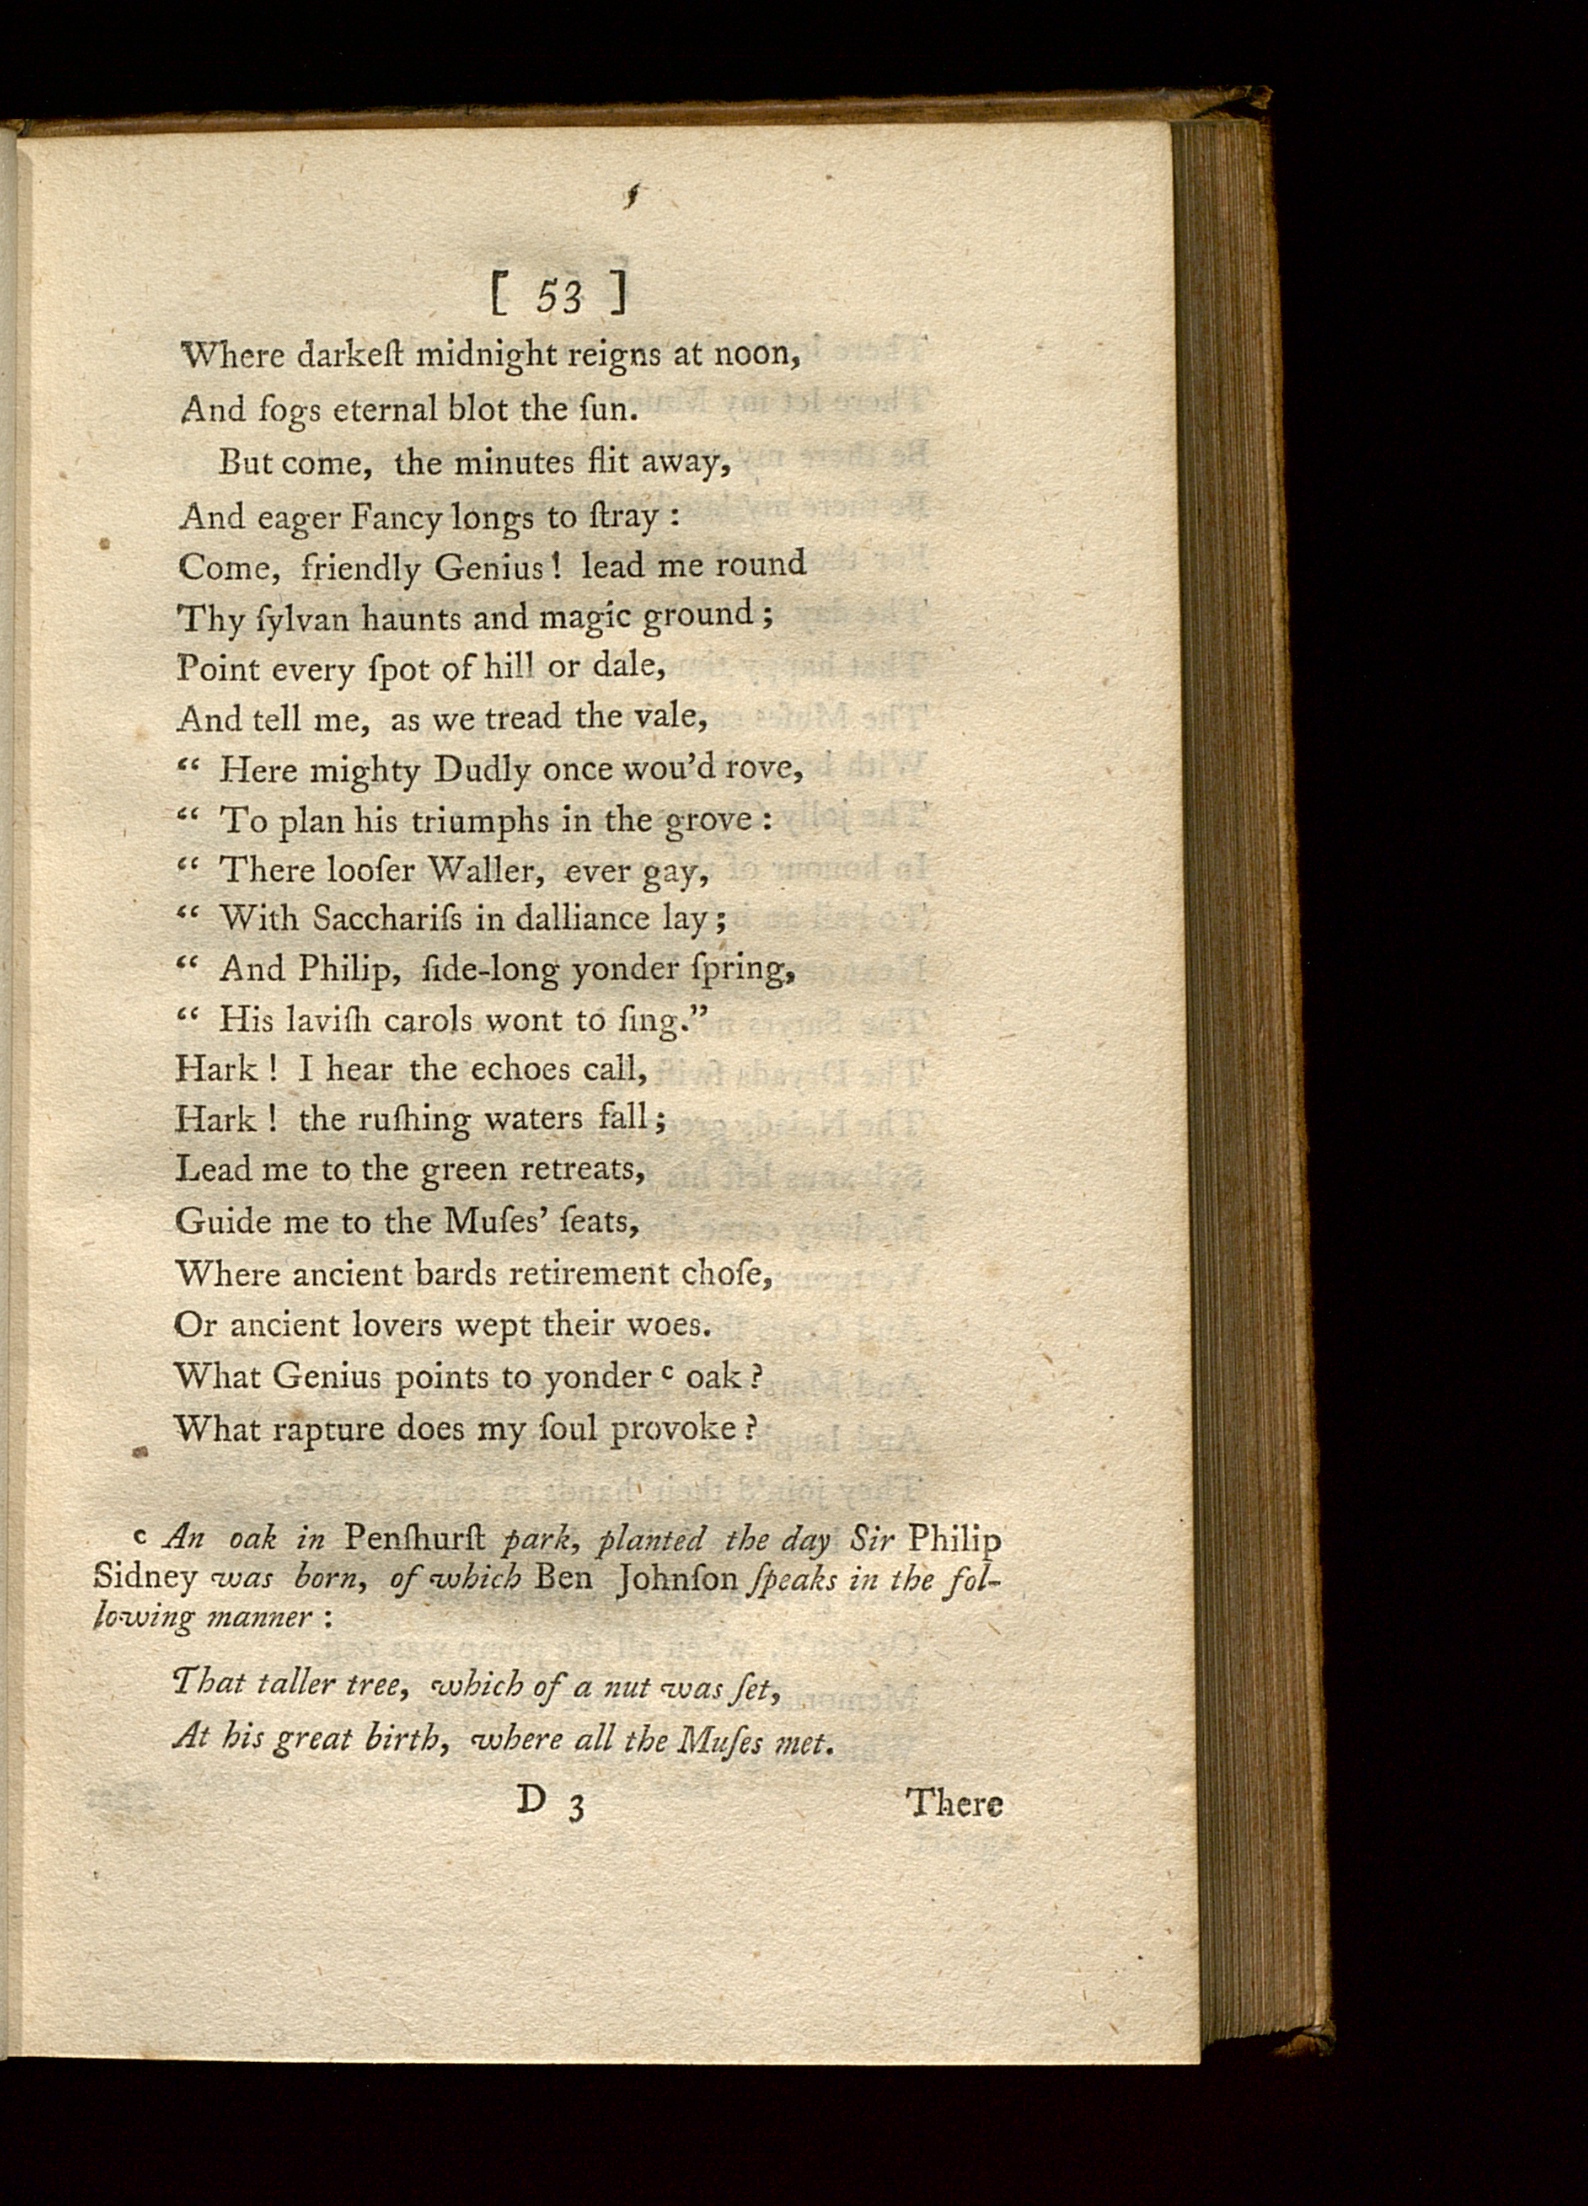 [ 53 ]
Where darkeſt midnight reigns at noon,
And fogs eternal blot the ſun.
But come, the minutes flit away,
And eager Fancy longs to ſtray :
Come, friendly Genius! lead me round
Thy ſylvan haunts and magic ground;
Point every ſpot of hill or dale,
And tell me, as we tread the vale,
“ Here mighty Dudly once wou'd rove,
“ To plan his triumphs in the grove :
“ There looſer Waller, ever gay,
“ With Sacchariſs in dalliance lay;
“ And Philip, ſide-long yonder ſpring,
“ His laviſh carols wont to ſing.”
Hark! I hear the echoes call,
Hark! the ruſhing waters fall;
Lead me to the green retreats,
Guide me to the Muſes' ſeats,
Where ancient bards retirement choſe,
Or ancient lovers wept their woes.
What Genius points to yonder c oak?
What rapture does my ſoul provoke?
c An oak in Penſhurſt park, planted the day Sir Philip
Sidney was born, of which Ben Johnſon ſpeaks in the fol-
lowing manner :
That taller tree, which of a nut was ſet,
At his great birth, where all the Muſes met.
D 3 There